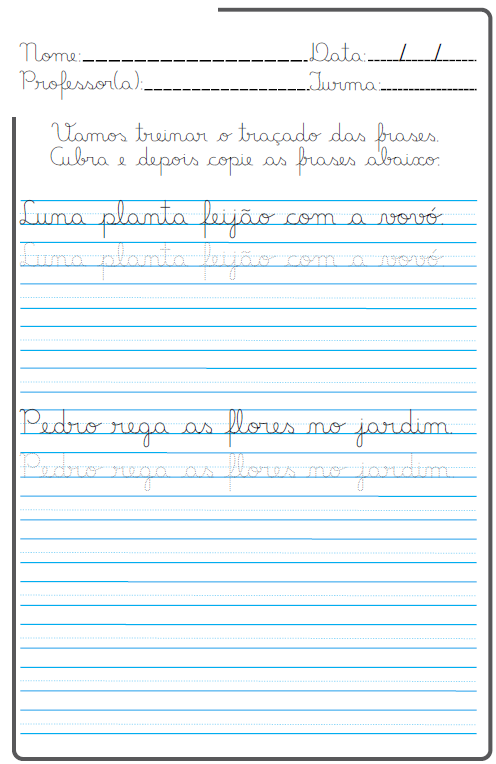 Nome: Data: / /
Professor(a): Turma:
Vamos treinar o traçado das frases.
Cubra e depois copie as frases abaixo:
Luna planta feijão com a vovó.
Luna planta feijão com a vovó.
Pedro rega as flores no jardim.
Pedro rega as flores no jardim.